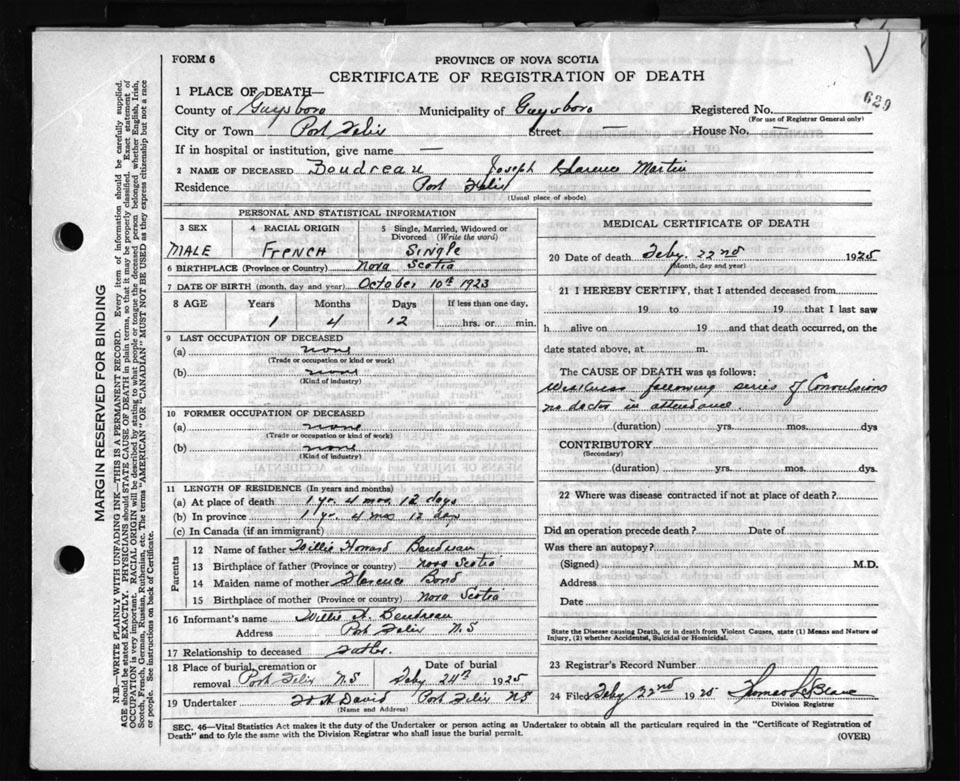 FORM 6
PROVINCE OF NOVA SCOTIA
CERTIFICATE OF REGISTRATION OF DEATH
629
1 PLACE OF DEATH—
County of Guysboro Municipality of Guysboro Registered No.
(For use of Registrar General only)
City or Town Port Felix Street — House No. —
If in hospital or institution, give name —
2 NAME OF DECEASED Boudreau Joseph Clarence Martin
Residence Port Felix
(Usual place of abode)
PERSONAL AND STATISTICAL INFORMATION
3 SEX 4 RACIAL ORIGIN 5 Single, Married, Widowed or
Divorced (Write the word)
MALE FRENCH SINGLE
6 BIRTHPLACE (Province or Country) Nova Scotia
7 DATE OF BIRTH (month, day and year) October 10th 1923
8 AGE Years Months Days If less than one day,
1 4 12 hrs. or min.
9 LAST OCCUPATION OF DECEASED
(a) none
(Trade or occupation or kind or work)
(b) none
(Kind of industry)
10 FORMER OCCUPATION OF DECEASED
(a) none
(Trade or occupation or kind of work)
(b) none
(Kind of industry)
11 LENGTH OF RESIDENCE (In years and months)
(a) At place of death 1 yr. 4 mos 12 days
(b) In province 1 yr. 4 mos 12 days
(c) In Canada (if an immigrant)
Parents
12 Name of father Willie Howard Boudreau
13 Birthplace of father (Province or country) Nova Scotia
14 Maiden name of mother Florence Bond
15 Birthplace of mother (Province or country) Nova Scotia
16 Informant's name Willie H. Boudreau
Address Port Felix N.S
17 Relationship to deceased Father.
18 Place of burial, cremation or Date of burial
removal Port Felix N.S Feby 24th 1925
19 Undertaker David Port Felix N.S
(Name and Address)
MEDICAL CERTIFICATE OF DEATH
20 Date of death Feby. 22nd 1925
(Month, day and year)
21 I HEREBY CERTIFY, that I attended deceased from
19 to 19 that I last saw
h alive on 19 and that death occurred, on the
date stated above, at m.
The CAUSE OF DEATH was as follows:
Weakness following series of Convulsions
no doctor in attendance.
(duration) yrs. mos. dys
CONTRIBUTORY
(Secondary)
(duration) yrs. mos. dys.
22 Where was disease contracted if not at place of death?
Did an operation precede death? Date of
Was there an autopsy?
(Signed) M.D.
Address
Date
State the Disease causing Death, or in death from Violent Causes, state (1) Means and Nature of
Injury, (2) whether Accidental, Suicidal or Homicidal.
23 Registrar's Record Number
24 Filed Feby 22nd 1925 Thomas LeBlanc
Division Registrar
SEC. 46—Vital Statistics Act makes it the duty of the Undertaker or person acting as Undertaker to obtain all the particulars required in the "Certificate of Registration of
Death" and to file the same with the Division Registrar who shall issue the burial permit. (OVER)
MARGIN RESERVED FOR BINDING
N.B.—WRITE PLAINLY WITH UNFADING INK—THIS IS A PERMANENT RECORD. Every item of information should be carefully supplied.
AGE should be stated EXACTLY. PHYSICIANS should STATE CAUSE OF DEATH in plain terms, so that it may be properly classified. Exact statement of
OCCUPATION is very important. RACIAL ORIGIN will be described by stating to what people or tongue the deceased person belonged whether English, Irish,
Scotch, French, German, Russian, Ruthenian, etc. The terms "AMERICAN" OR "CANADIAN" MUST NOT BE USED as they express citizenship but not a race
or people. See instructions on back of Certificate.